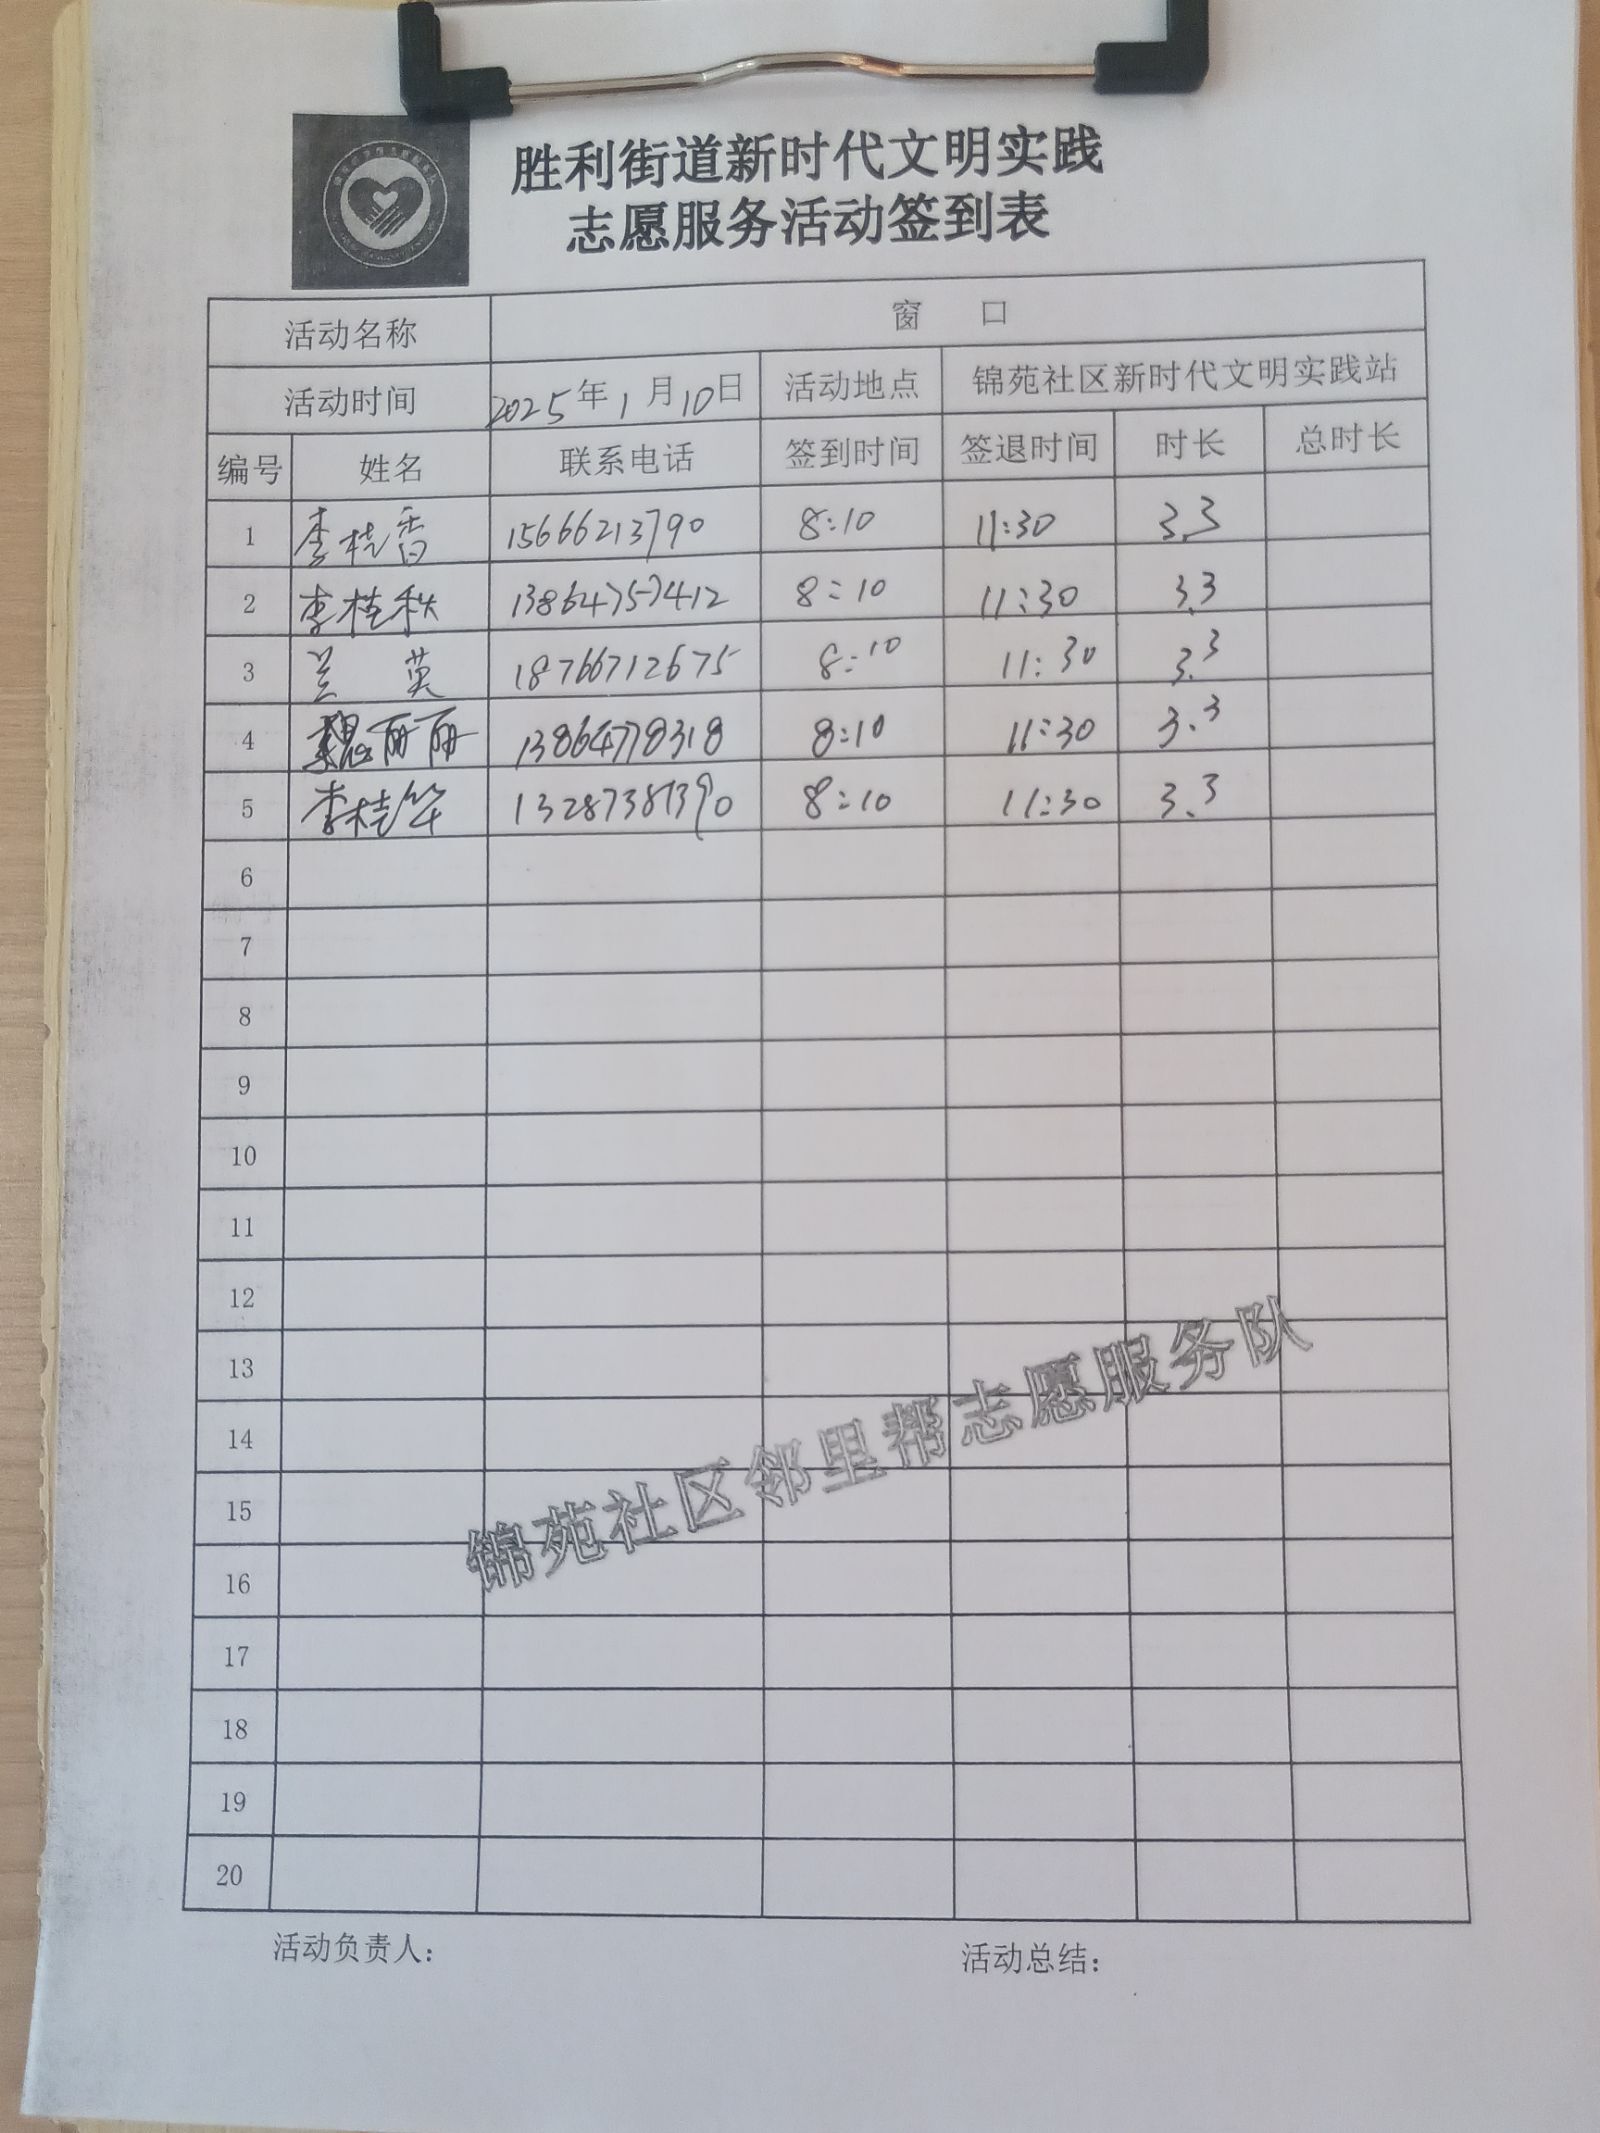 胜利街道新时代文明实践
志愿服务活动签到表
活动名称 窗 口
活动时间 2025年1月10日 活动地点 锦苑社区新时代文明实践站
编号 姓名 联系电话 签到时间 签退时间 时长 总时长
1 李桂香 15666213790 8:10 11:30 3.3
2 李桂秋 13864757412 8:10 11:30 3.3
3 兰英 18766712675 8:10 11:30 3.3
4 魏丽丽 13864778318 8:10 11:30 3.3
5 李桂华 8:10 11:30 3.3
6
7
8
9
10
11
12
13
14
15
16
17
18
19
20
锦苑社区邻里帮志愿服务队
活动负责人： 活动总结：